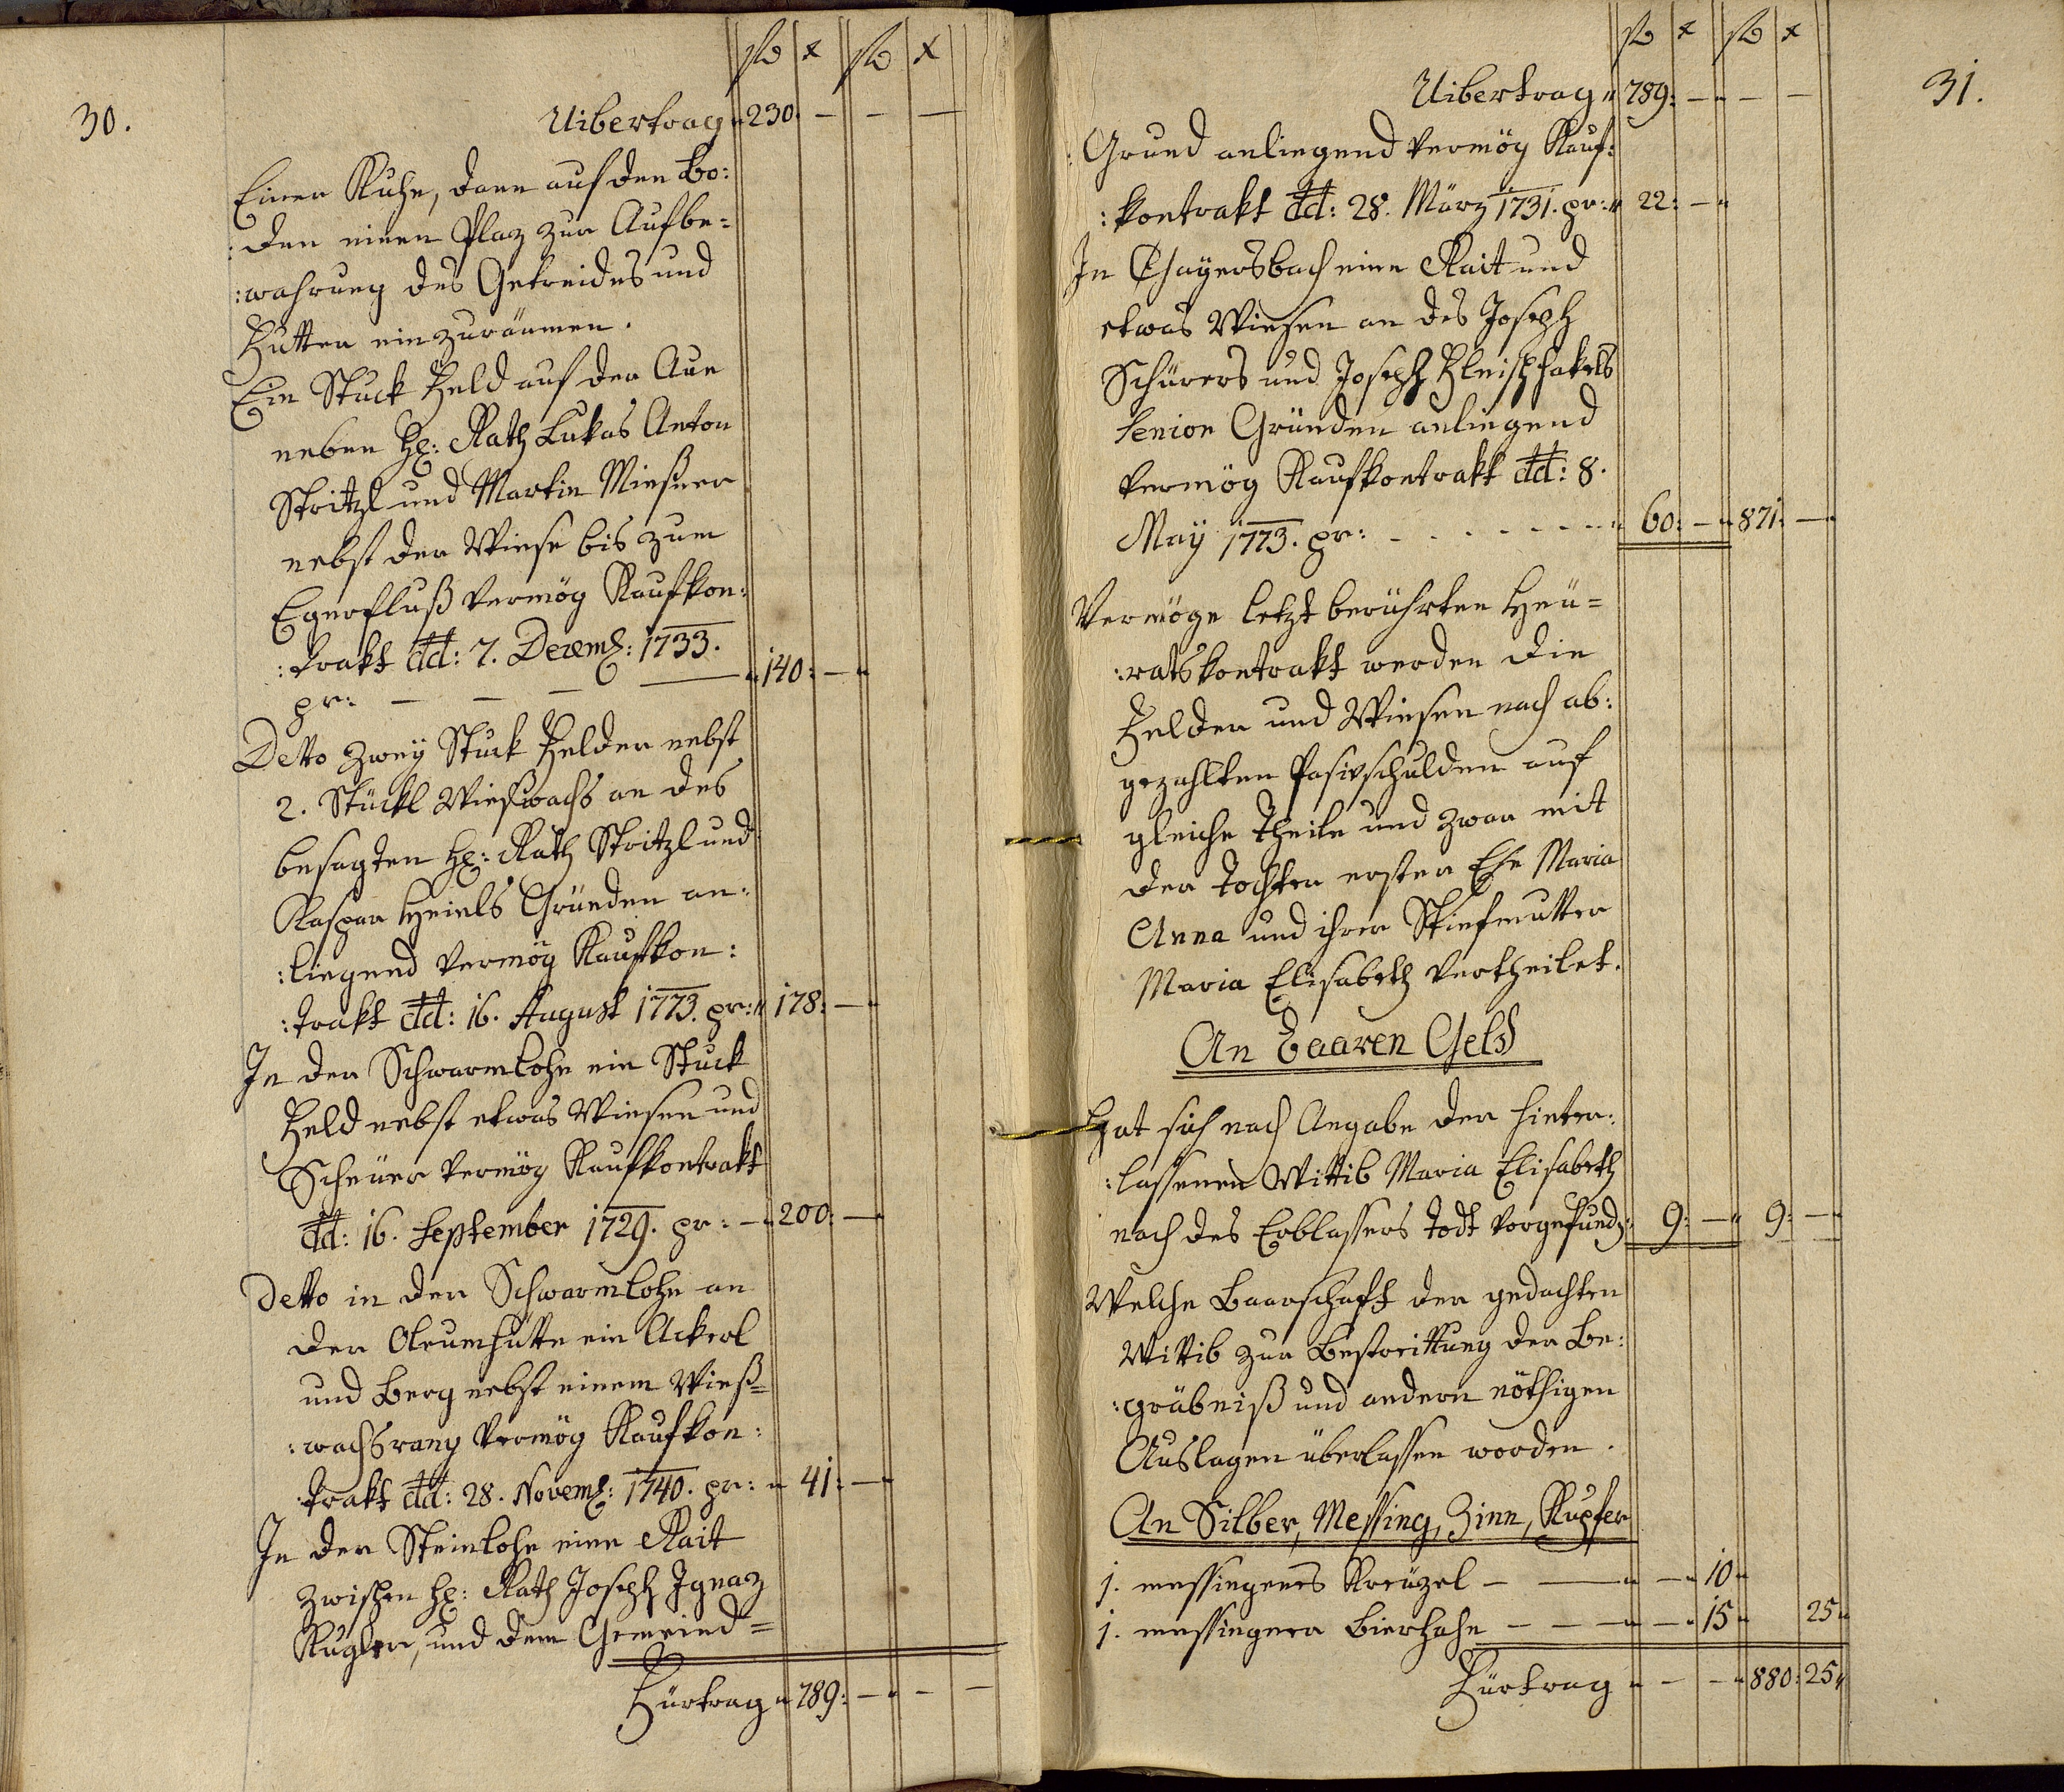 30.
fl x fl x
Uibertrag " 230. — — —
Einer Kuhe, dann auf den Bo:
:den einen Plaz zur Aufbe=
:wahrung des Getreides und
Futter einzuräumen.
Ein Stuck Feld auf der Aue
neben H: Rath Lukas Anton
Stritzl und Martin Miesner
nebst der Wiese bis zum
Egerfluß vermög Kaufkon:
:trakt dd: 7. Decemb: 1733.
pr: — — — — " 140: — "
Detto zwey Stuck Felder nebst
2. Stückl Wießwachs an des
besagten H: Rath Stritzl und
Kaspar Heinls Gründen an:
:liegend vermög Kaufkon:
:trakt dd: 16. August 1773. pr: " 178: — "
In der Schwarmlohe ein Stuck
Feld nebst etwas Wiesen und
Scheuer vermög Kaufkontrakt
dd: 16. September 1729. pr: — " 200: — "
Detto in der Schwarmlohe an
der Oleumhütte ein Ackerl
und Berg nebst einem Wieß=
:wachsrang vermög Kaufkon:
:trakt dd: 28. Novemb: 1740. pr: " 41: — "
In der Steinlohe eine Rait
zwischen H: Rath Joseph Ignaz
Kugler, und dem Gemeind=
Fürtrag " 789: — " — —
31.
fl x fl x
Uibertrag " 789: — " — —
:Grund anliegend vermög Kauf:
:kontrakt dd: 28. März 1731. pr: " 22: — "
In Thayersbach eine Rait und
etwas Wiesen an des Joseph
Schürers und Joseph Fleischhakels
Senior Gründen anliegend
vermög Kaufkontrakt dd: 8.
May 1773. pr: - - - - - - " 60: — " 871: — "
Vermöge letzt berührten Heu=
:ratskontrakt werden die
Felder und Wiesen nach ab:
gezahlten Pasivschulden auf
gleiche Theile und zwar mit
der Tochter erster Ehe Maria
Anna und ihrer Stiefmutter
Maria Elisabeth vertheilet.
An Baaren Geld
Hat sich nach Angabe der hinter:
:lassenen Wittib Maria Elisabeth
nach des Erblassers Todt vorgefund: " 9: — " 9: — "
Welche Baarschaft der gedachten
Wittib zur Bestreittung der Be:
:gräbniß und andern nöthigen
Auslagen überlassen worden.
An Silber, Messing, Zinn, Kupfer
1. messingenes Kreuzel — — " — " 10 "
1. messingener Bierhahn — — — " — " 15 " 25 "
Fürtrag " — — " 880: 25 "